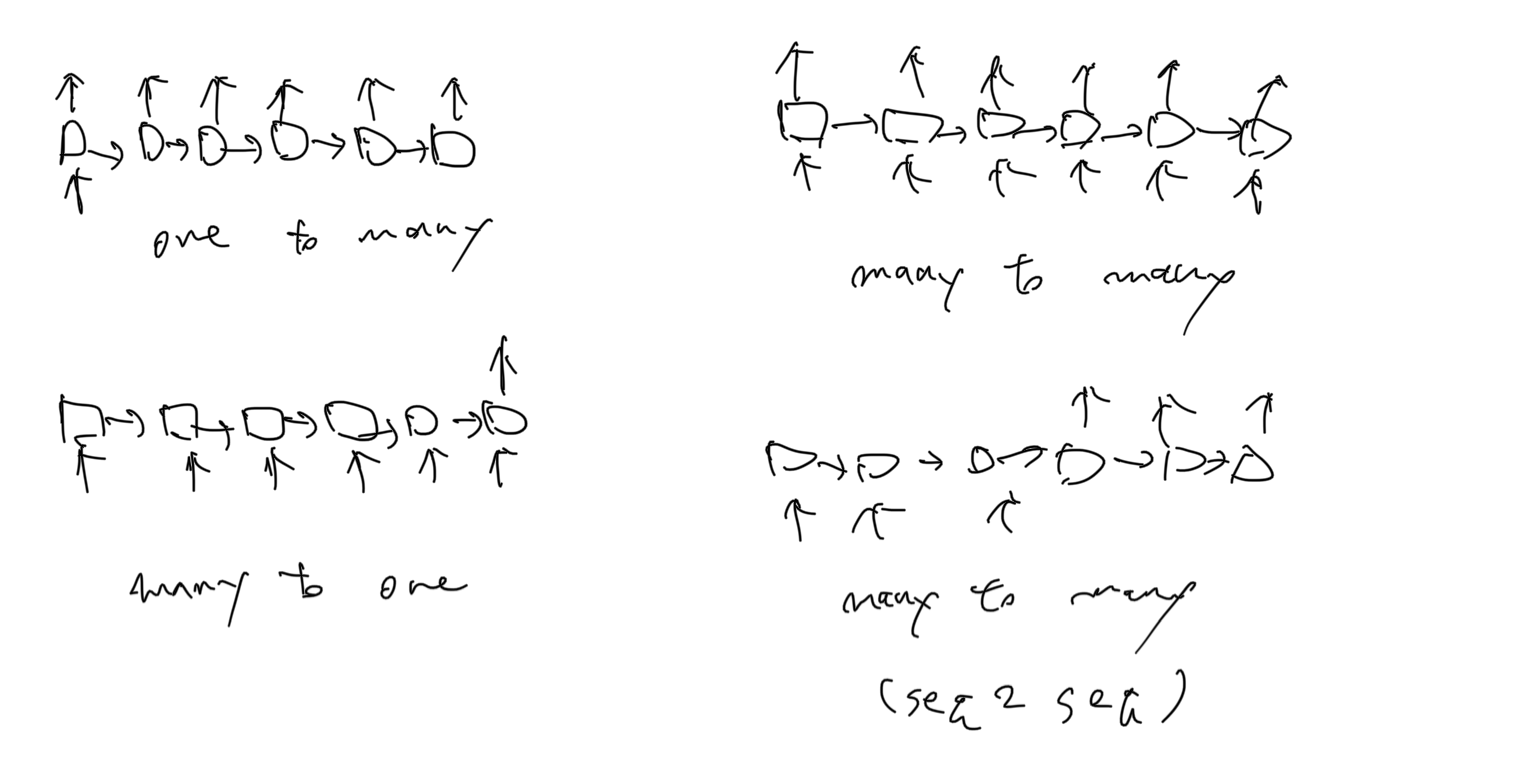 one to many
many to many
many to one
many to many
(seq 2 seq)